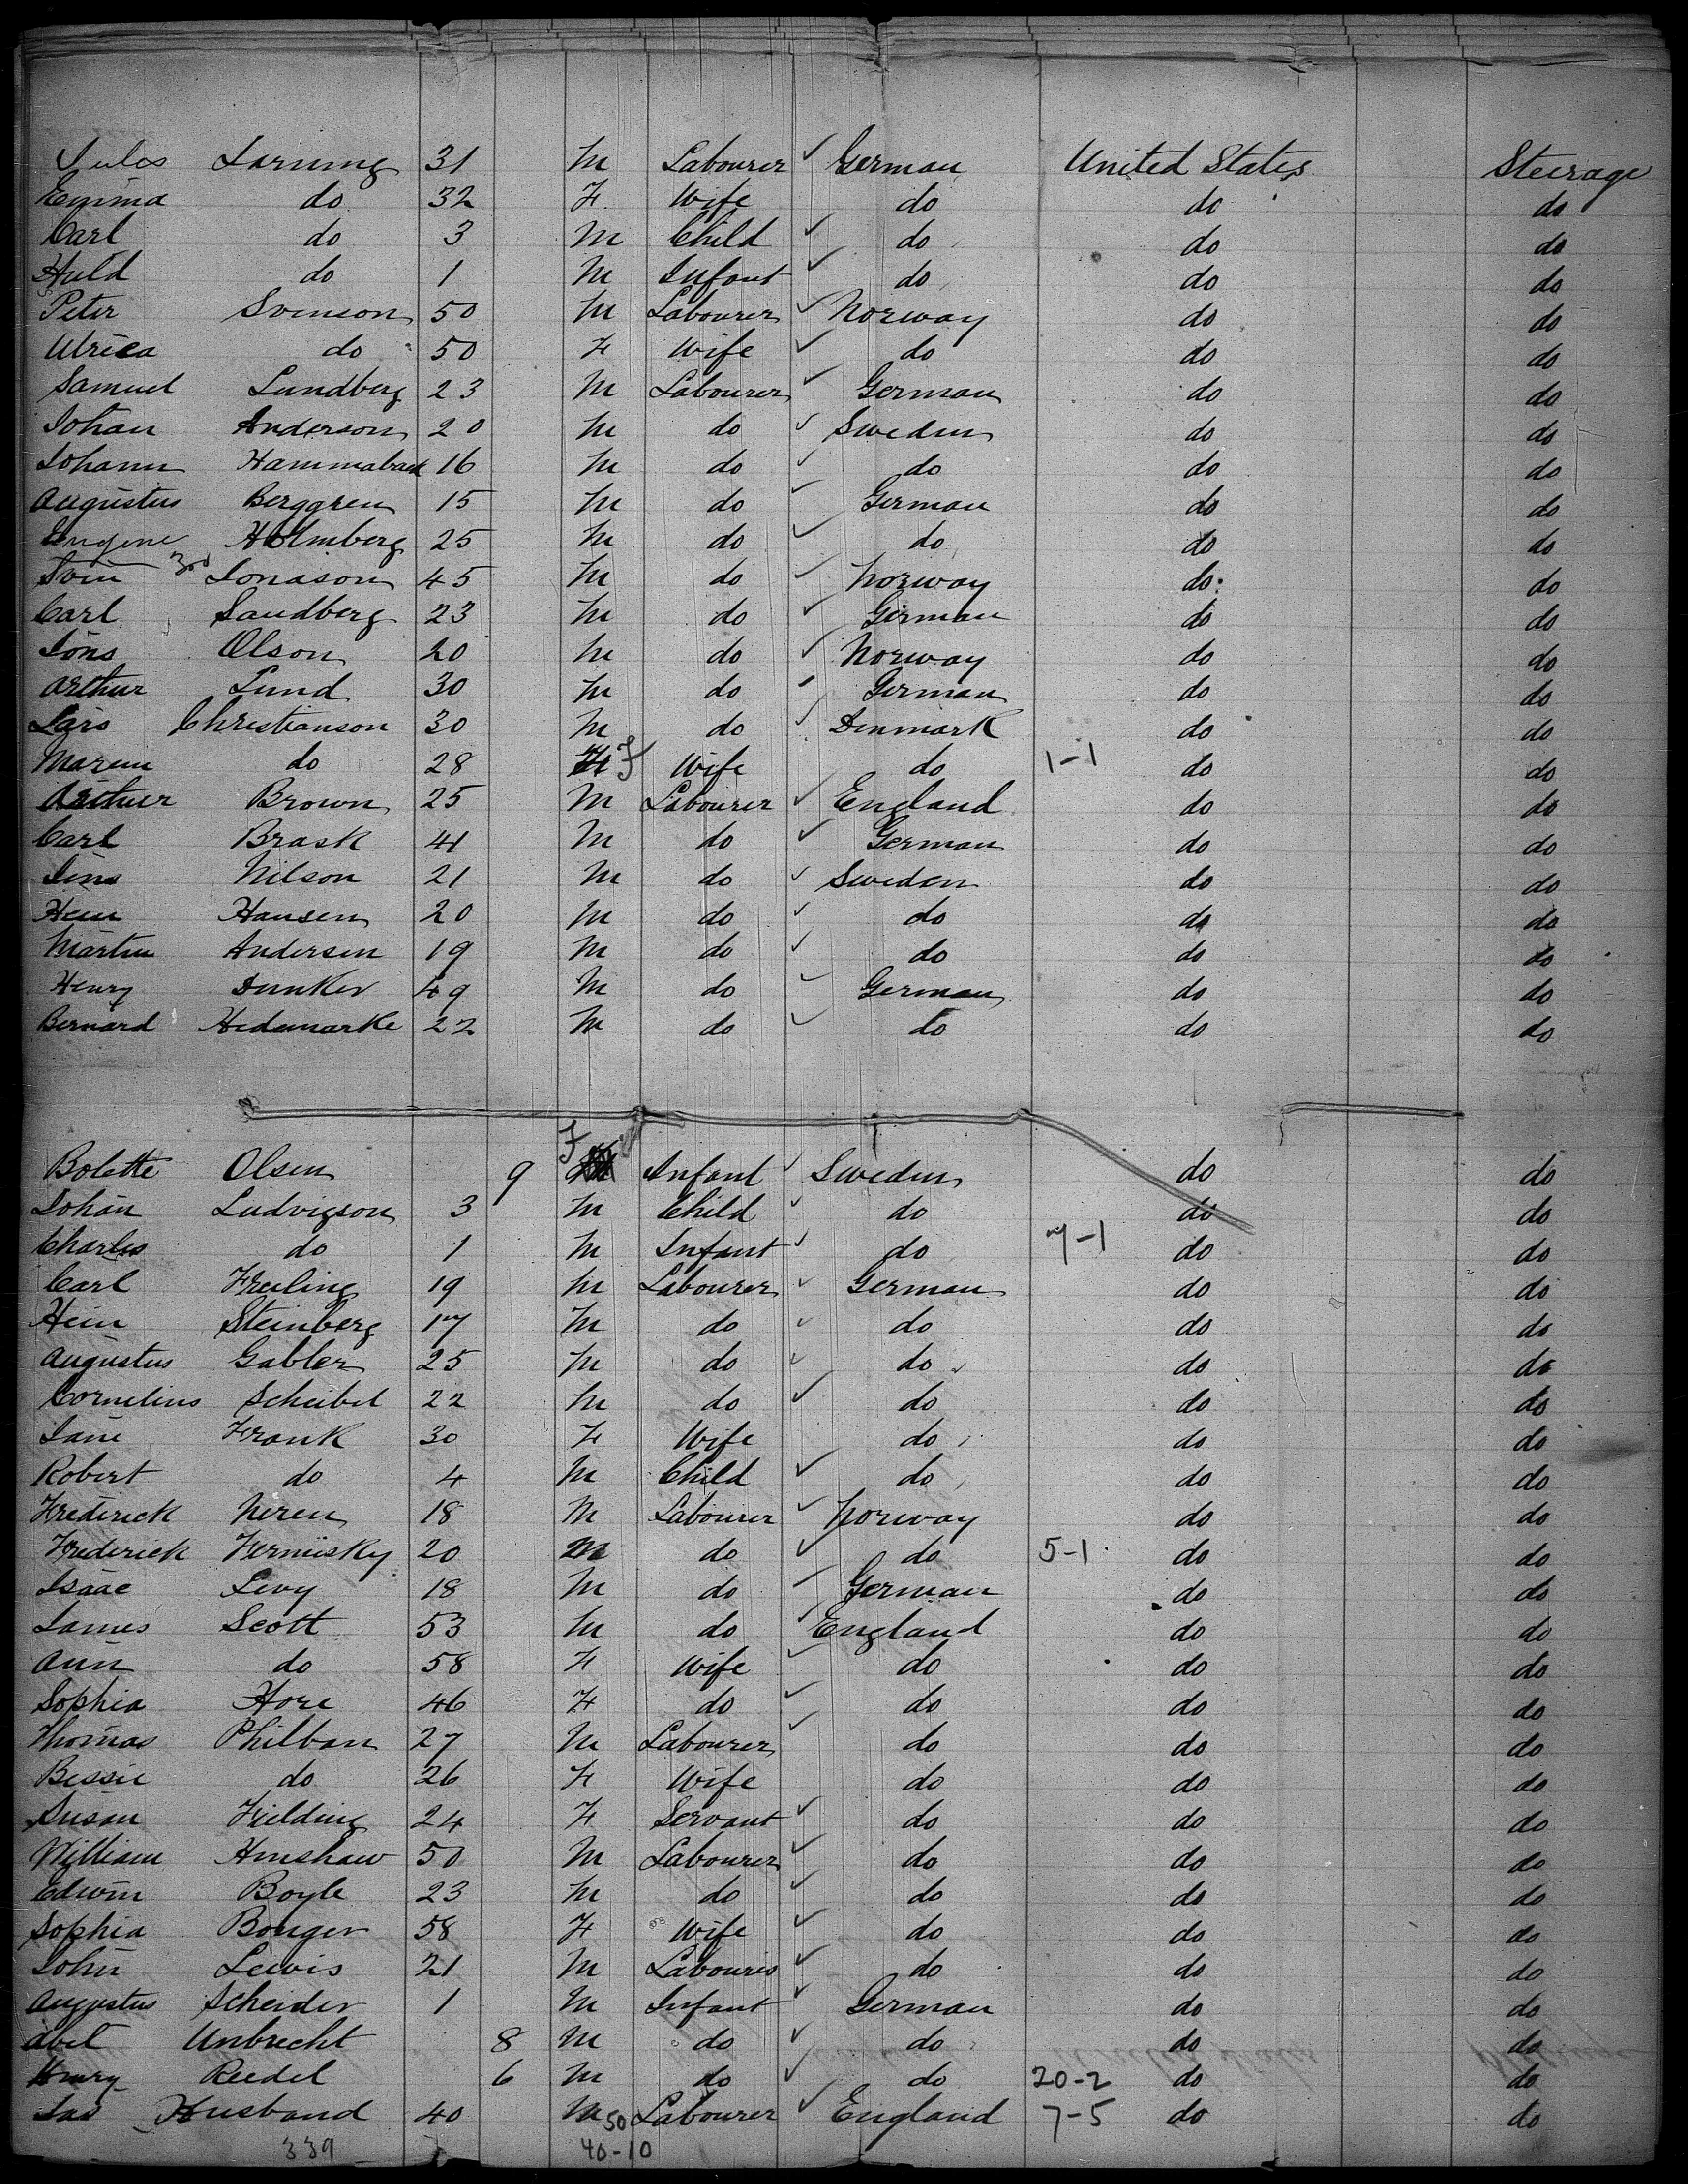 Jules Larning 31 M Labourer ✓ German United States Steerage
Emma do 32 F. Wife do do do
Carl do 3 M Child ✓ do do do
Huld do 1 M Infant ✓ do do do
Peter Svenson 50 M Labourer ✓ Norway do do
Ulrica do 50 F Wife ✓ do do do
Samuel Lundberg 23 M Labourer ✓ German do do
Johan Anderson 20 M do ✓ Sweden do do
Johann Hammaback 16 M do ✓ do do do
Augustus Berggren 15 M do ✓ German do do
Eugene Holmberg 25 M do ✓ do do do
Sven Jonason 45 M do ✓ Norway do do
Carl Sandberg 23 M do ✓ German do do
Jons Olson 20 M do ✓ Norway do do
Arthur Lund 30 M do ✓ German do do
Lars Christianson 30 M do ✓ Denmark do do
Maren do 28 F Wife do 1-1 do do
Arthur Brown 25 M Labourer ✓ England do do
Carl Brask 41 M do ✓ German do do
Jens Nilson 21 M do ✓ Sweden do do
Hein Hansen 20 M do ✓ do do do
Martin Andersen 19 M do ✓ do do do
Henry Dunker 49 M do ✓ German do do
Bernard Hedemarke 22 M do ✓ do do do
Bolette Olsen 9 F Infant ✓ Sweden do do
Johan Ludvigson 3 M Child ✓ do do do
Charles do 1 M Infant ✓ do 7-1 do do
Carl Freiling 19 M Labourer ✓ German do do
Hein Steinberg 17 M do ✓ do do do
Augustus Gabler 25 M do ✓ do do do
Cornelius Scheibel 22 M do ✓ do do do
Jane Frank 30 F Wife do do do
Robert do 4 M Child ✓ do do do
Frederick Neren 18 M Labourer ✓ Norway do do
Frederick Fernüsky 20 M do ✓ do 5-1 do do
Isaac Levy 18 M do ✓ German do do
James Scott 53 M do ✓ England do do
Ann do 58 F Wife ✓ do do do
Sophia Hore 46 F do ✓ do do do
Thomas Philban 27 M Labourer ✓ do do do
Bessie do 26 F Wife do do do
Susan Fielding 24 F Servant ✓ do do do
William Hinshaw 50 M Labourer ✓ do do do
Edwin Boyle 23 M do ✓ do do do
Sophia Bonger 58 F Wife ✓ do do do
John Lewis 21 M Labourer ✓ do do do
Augustus Scheider 1 M Infant ✓ German do do
Abel Unbrecht 8 M do ✓ do do do
Henry Reedel 6 M do ✓ do 20-2 do do
Jas Husband 40 M 50 Labourer ✓ England 7-5 do do
339 40-10